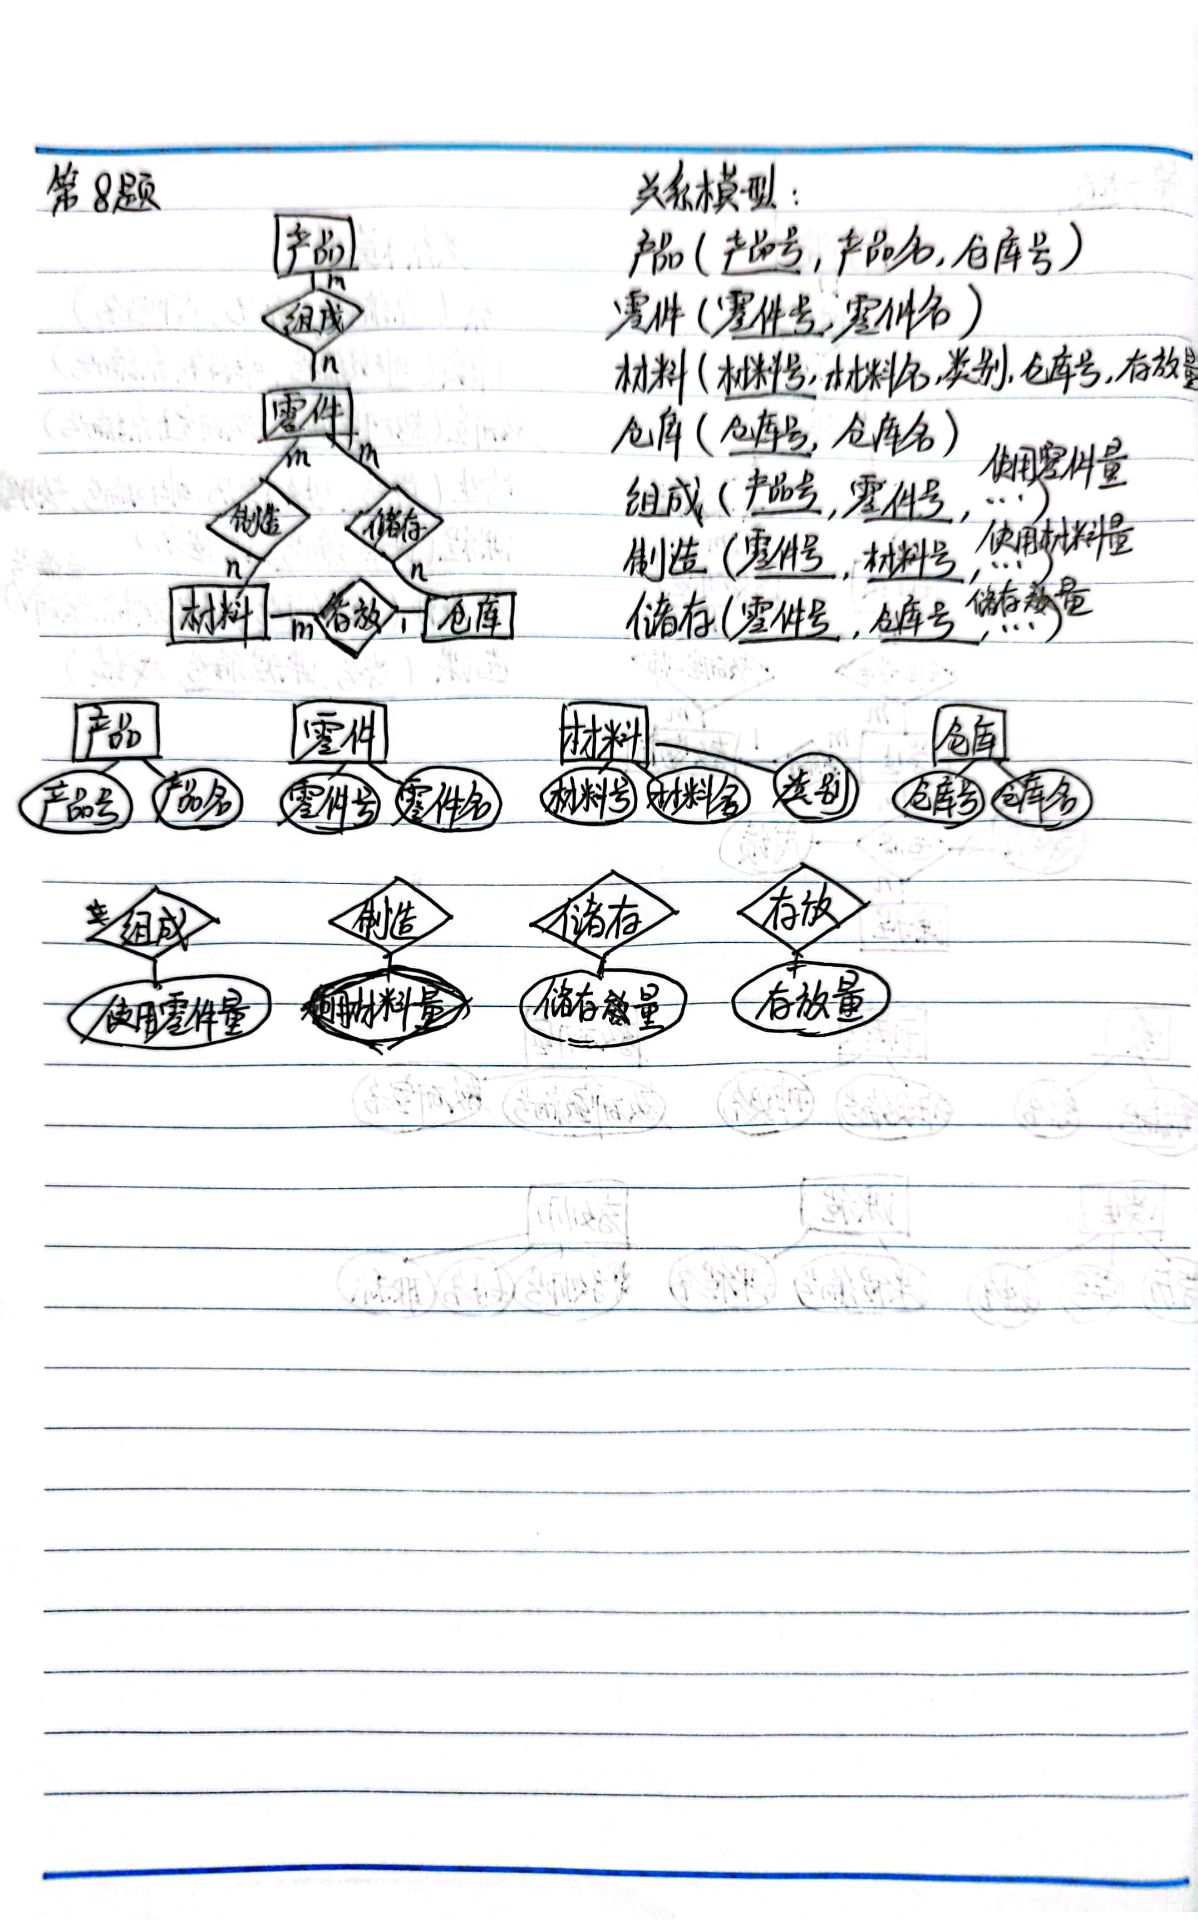 第8题
产品
m
组成
n
零件
m m
制造 储存
n n
材料 m 存放 1 仓库
关系模型：
产品（产品号，产品名，仓库号）
零件（零件号，零件名）
材料（材料号，材料名，类别，仓库号，存放量
仓库（仓库号，仓库名）
组成（产品号，零件号，…）使用零件量
制造（零件号，材料号，…）使用材料量
储存（零件号，仓库号，…）储存数量
产品 零件 材料 仓库
产品号 产品名 零件号 零件名 材料号 材料名 类别 仓库号 仓库名
组成 制造 储存 存放
使用零件量 使用材料量 储存数量 存放量